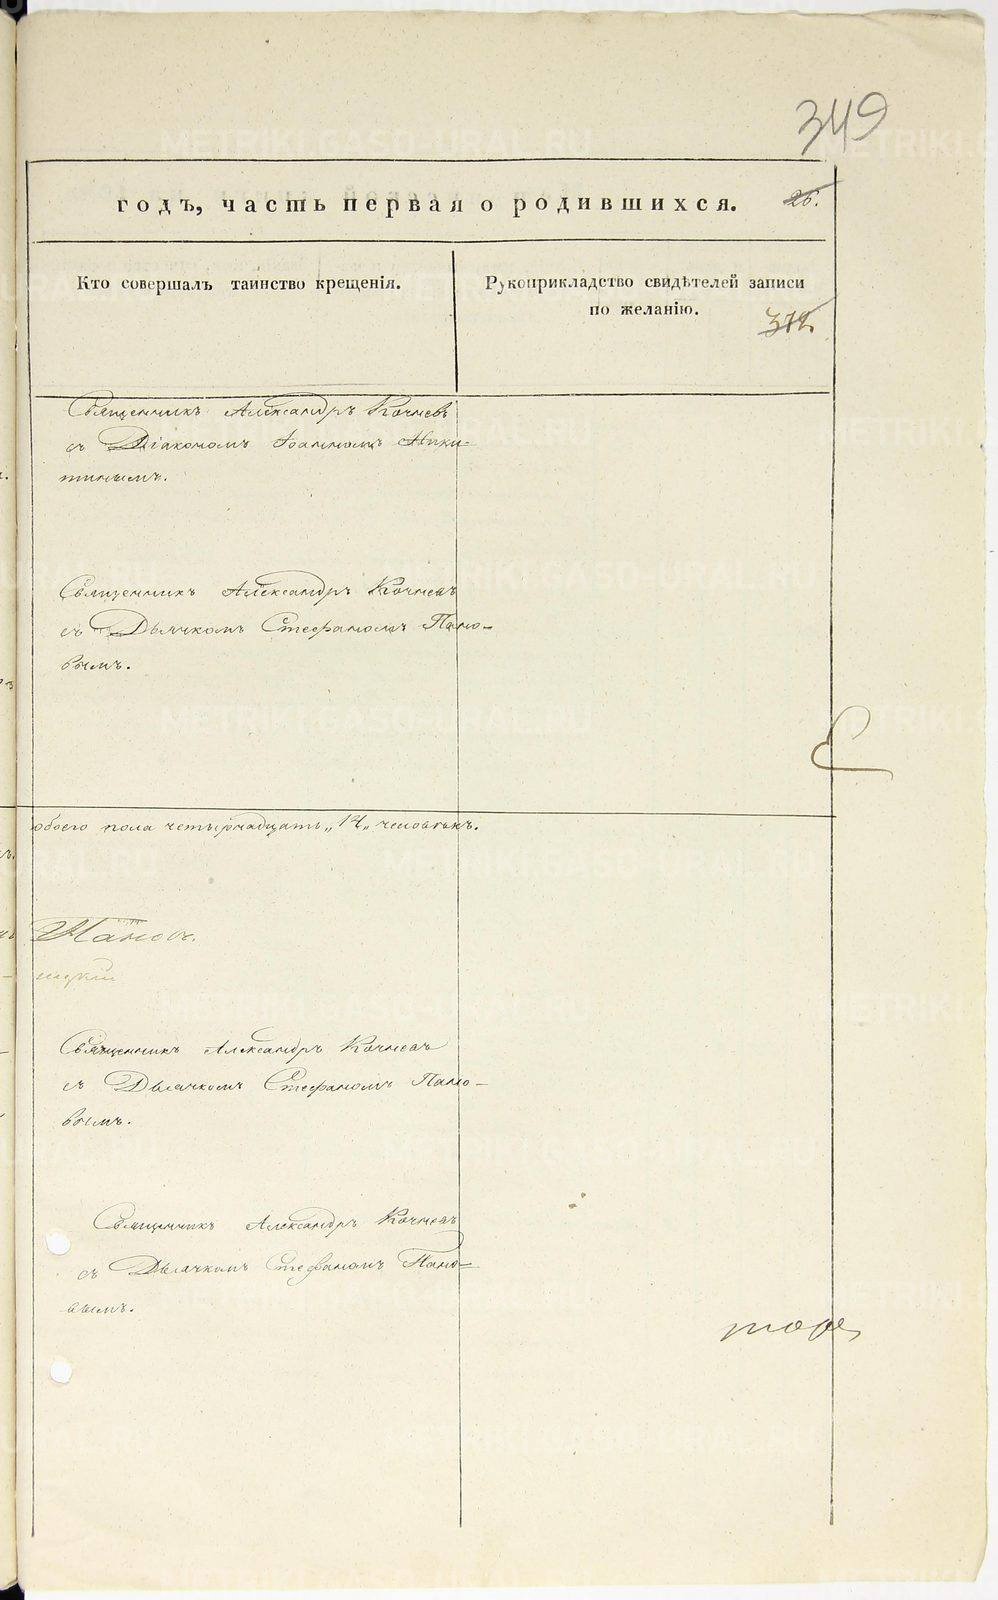 349
годъ, часть первая о родившихся. 26.
Кто совершалъ таинство крещенія.
Рукоприкладство свидѣтелей записи
по желанію.
372
Священникъ Александръ Кочневъ
съ Діакономъ Іоанномъ Ники-
тинымъ.
Священникъ Александръ Кочневъ
съ Дьячкомъ Стефаномъ Пано-
вымъ.
обоего пола четырнадцать „14„ человѣкъ.
Пановъ.
Священникъ Александръ Кочневъ
съ Дьячкомъ Стефаномъ Пано-
вымъ.
Священникъ Александръ Кочневъ
съ Дьячкомъ Стефаномъ Пано-
вымъ.
METRIKI.GASO-URAL.RU